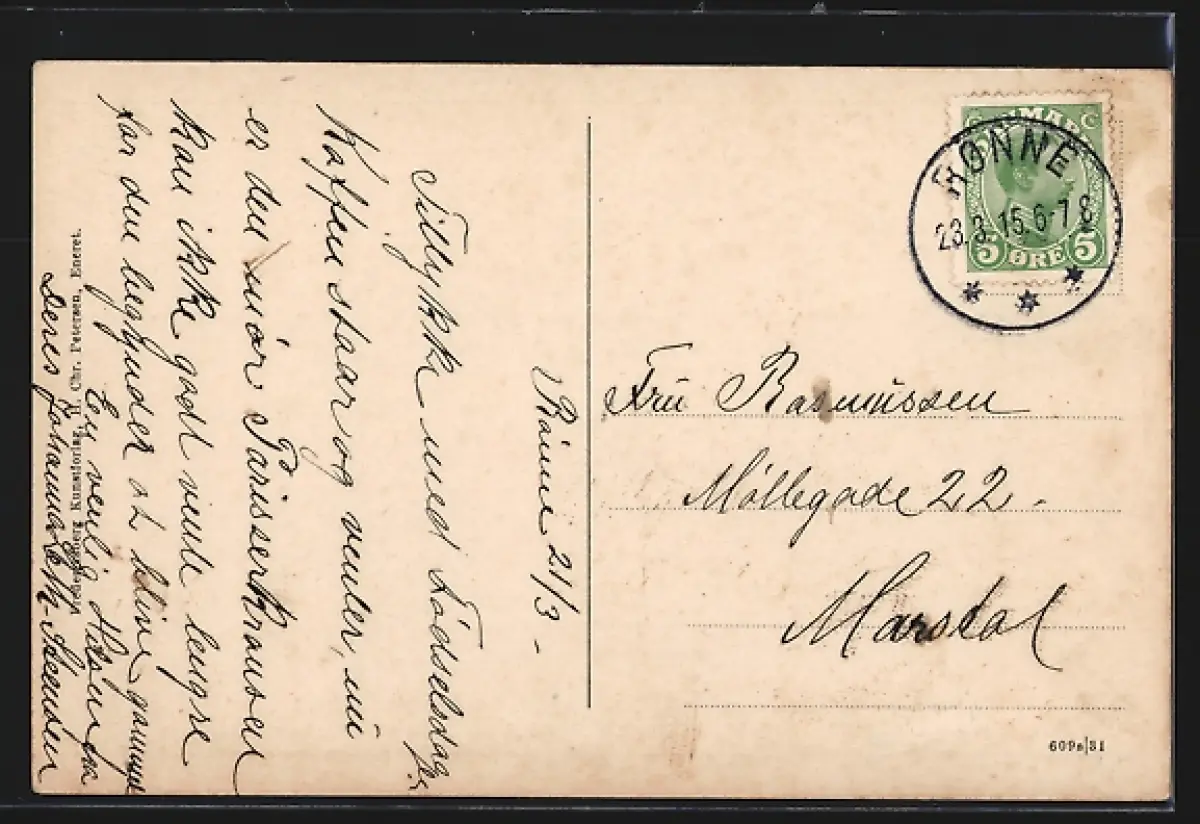 Rönne 21/3 -
Tillykke med Födselsdagen
Kaffen staar og venter, nu
er den mör Pariserkransen
kan ikke godt vente lengre
for den begynder at blive gammel
En venlig Hilsen fra
Deres Johanne
Kunstforlag, H. Chr. Petersen, Eneret.
DANMARK
5 ØRE 5
RØNNE
23.3.15.6-7 E
Fru Rasmussen
Möllegade 22 -
Marstal
609a|31